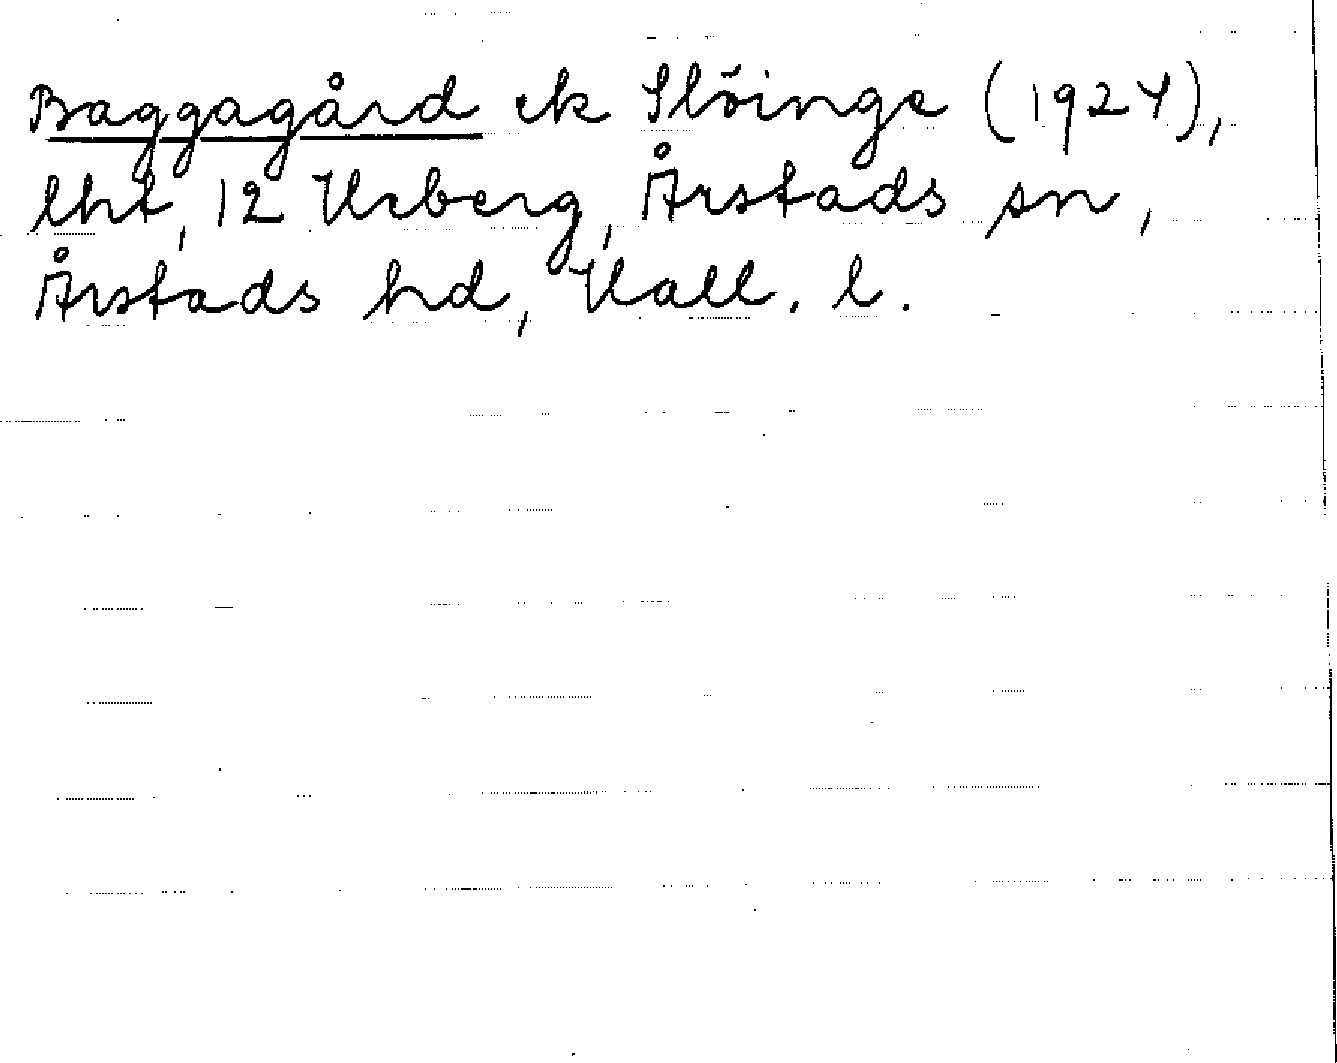 Baggagård ek Slöinge (1924),
lht, 12 Heberg, Årstads sn,
Årstads hd, Hall. l.